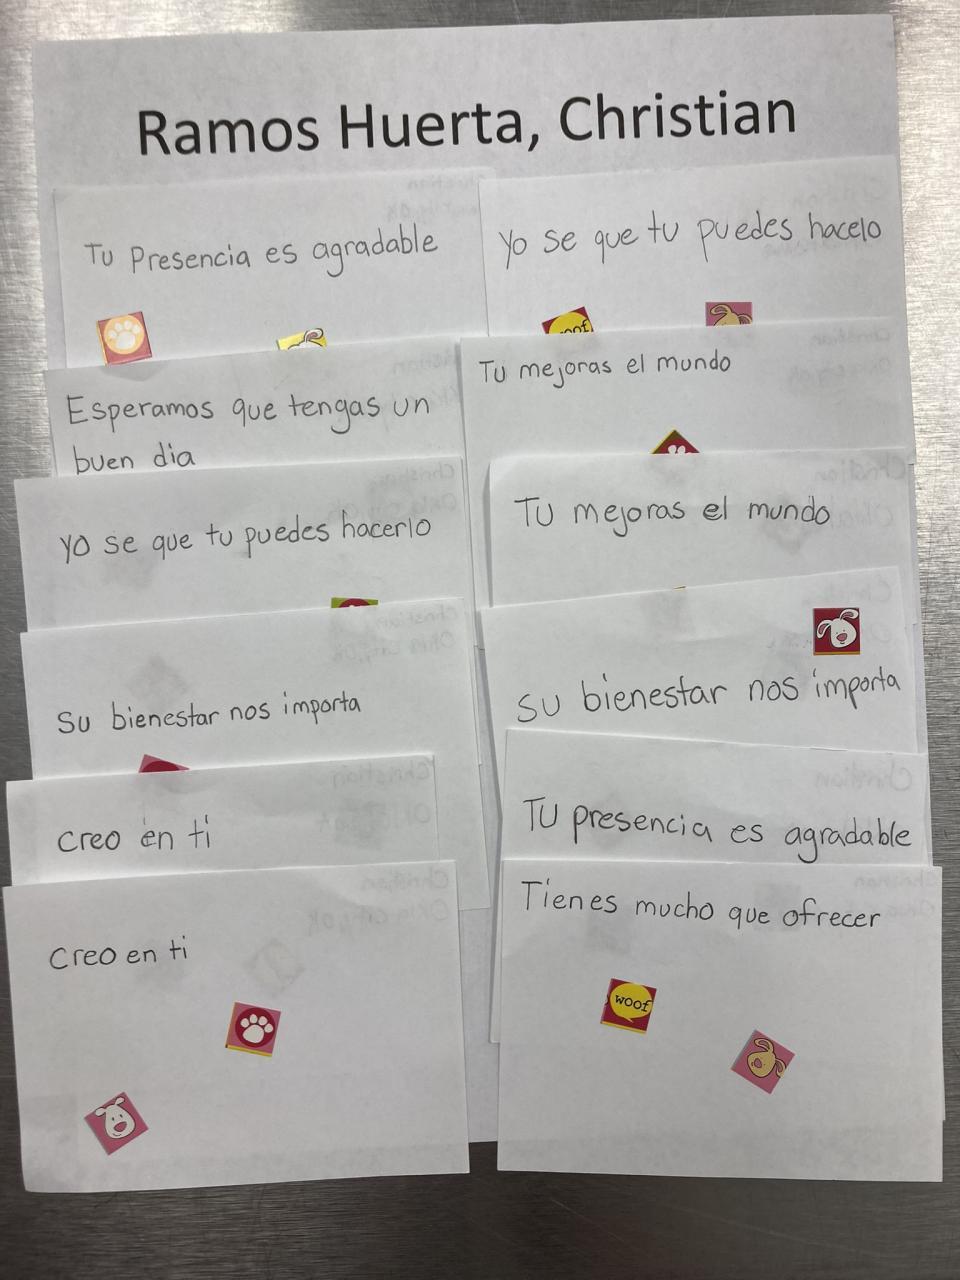 Ramos Huerta, Christian
Tu Presencia es agradable
Yo se que tu puedes hacelo
woof
Esperamos que tengas un
buen dia
Tu mejoras el mundo
yo se que tu puedes hacerlo
Tu mejoras el mundo
Su bienestar nos importa
Su bienestar nos importa
creo en ti
Tu presencia es agradable
creo en ti
Tienes mucho que ofrecer
woof